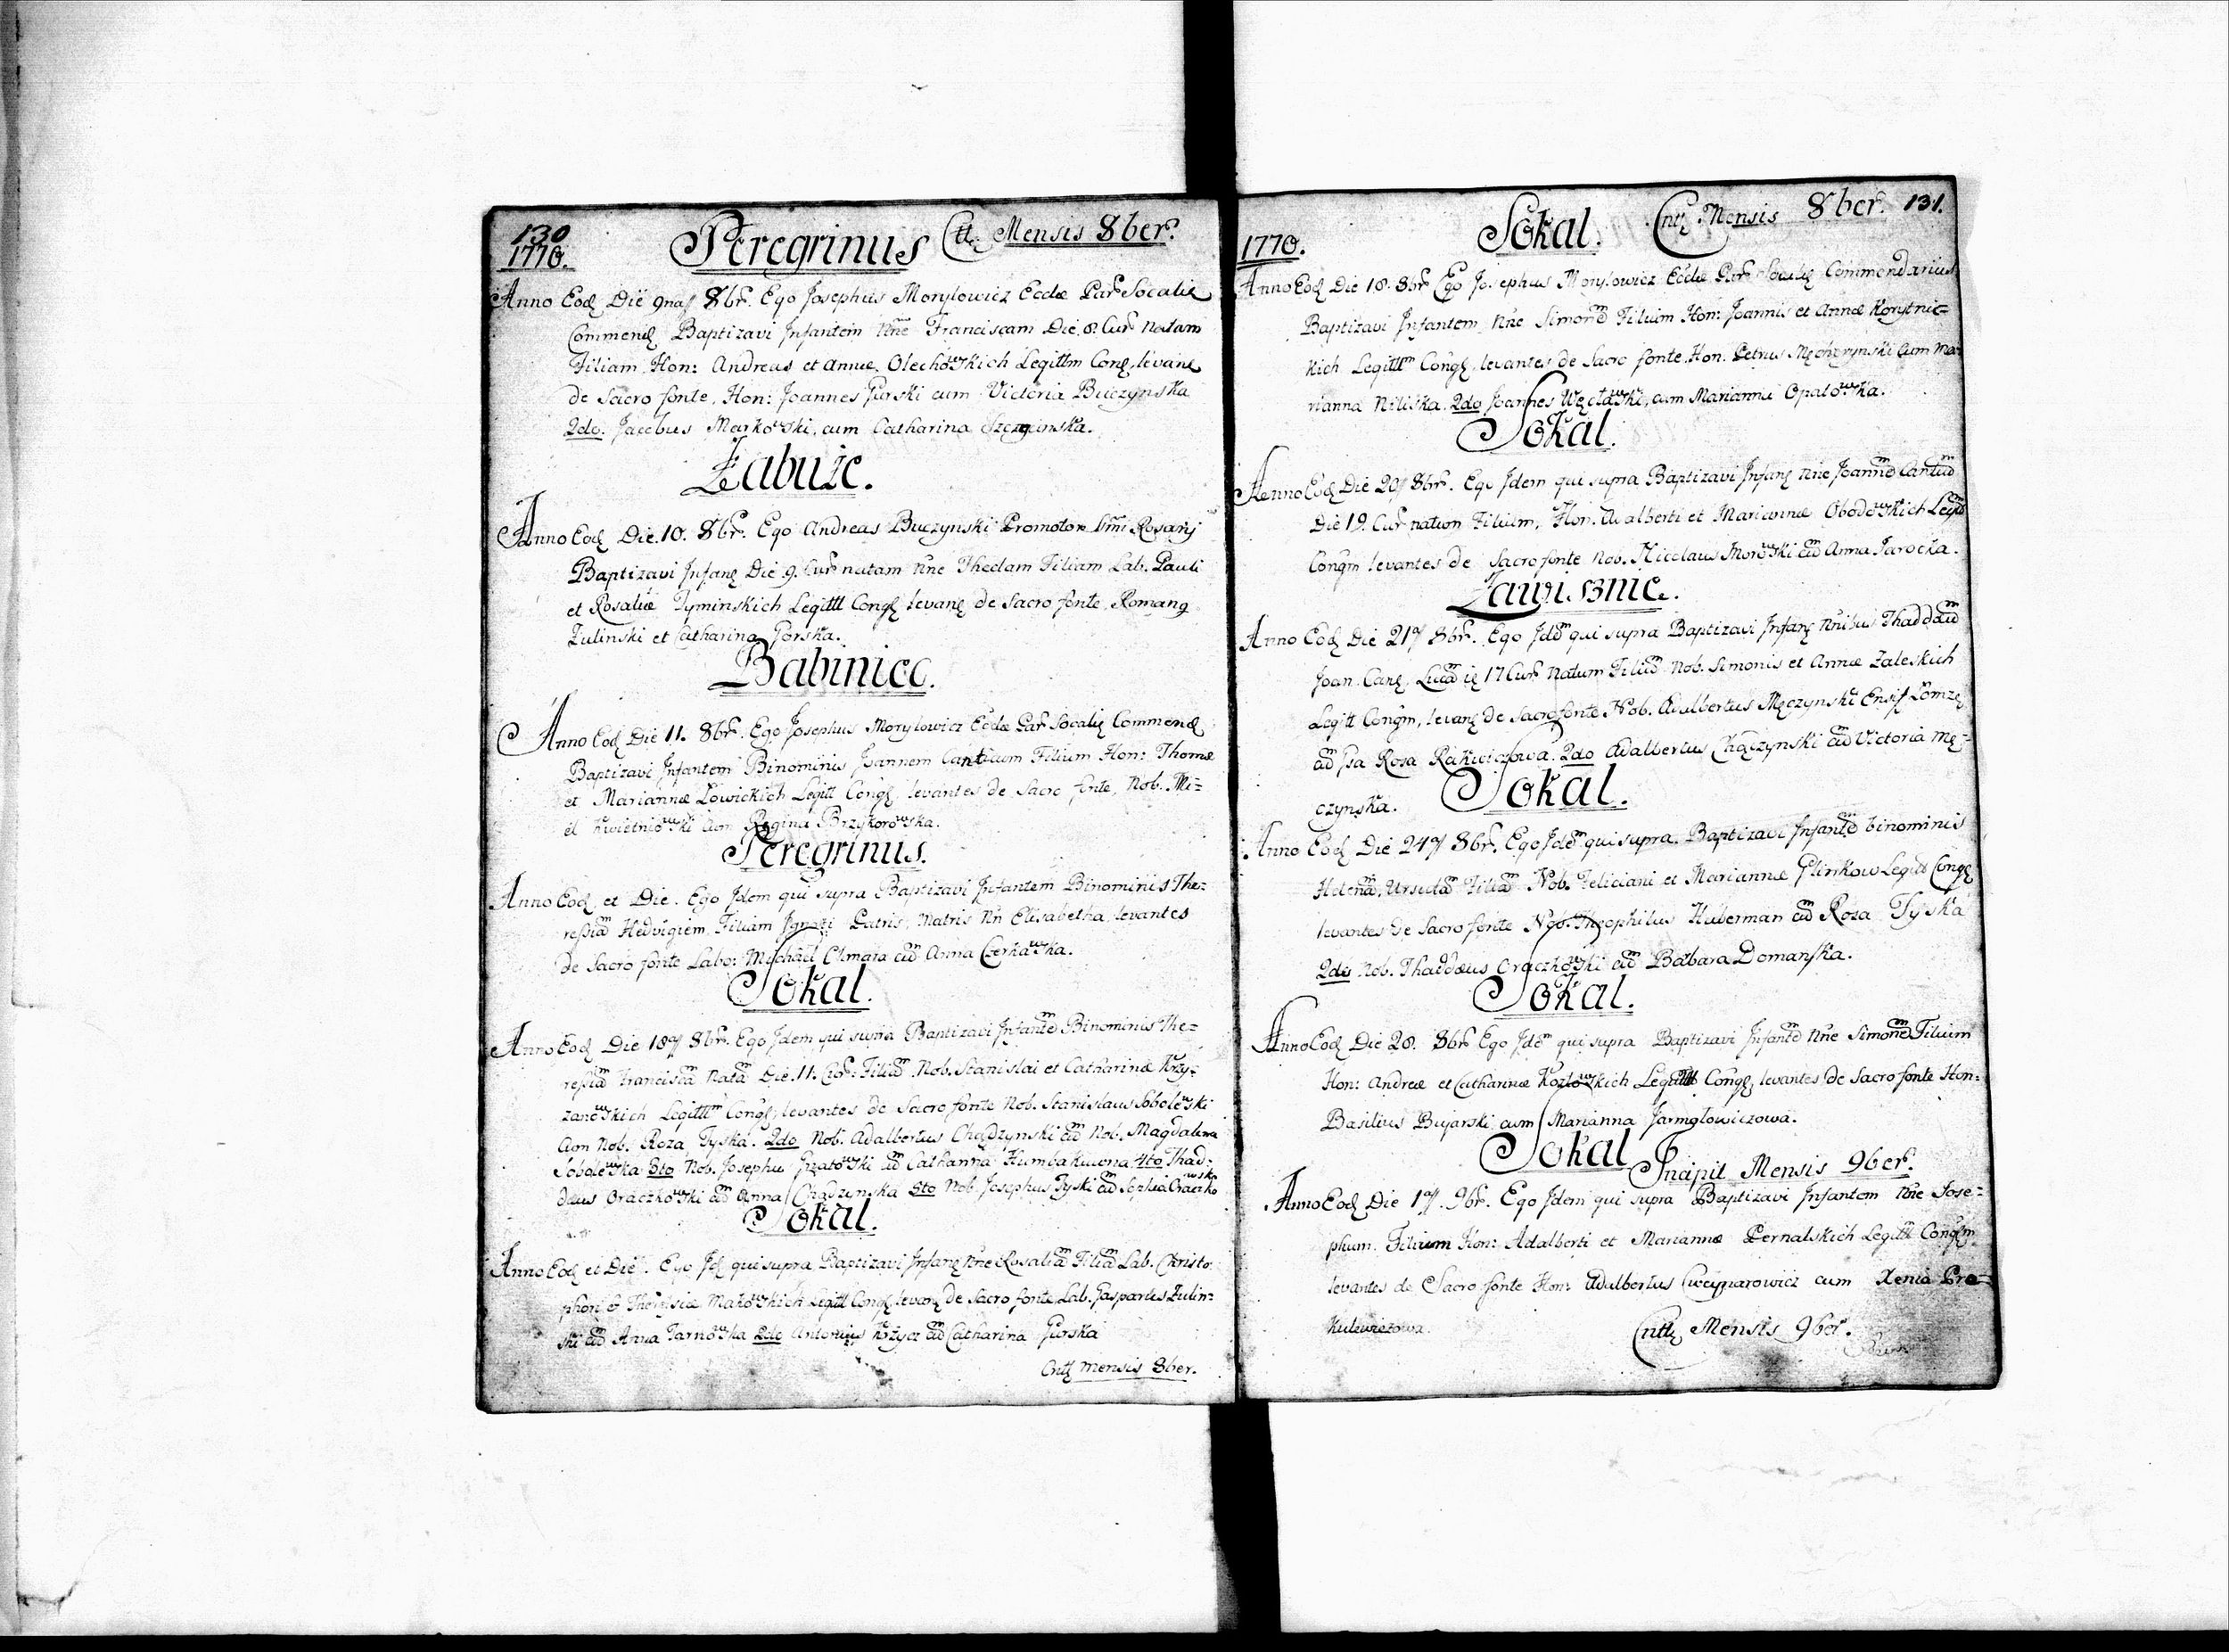 130
1770.
Peregrinus Ctt Mensis 8ber.
Anno Eod Die 9na 8br. Ego Josephus Morylowicz Ecclæ Par Socalie
Commend Baptizavi Infantem Nne Franciscam Die 8 Cur Natam
Filiam Hon: Andreas et Annæ Olechowskich Legittm Cong, levant
de Sacro fonte, Hon: Joannes Gurski cum Victoria Buczynska
2do. Jacobus Markowski, cum Catharina
Zabuże.
Anno Eod Die 10. 8br. Ego Andreas Buczynski Promotor Smi Rosarij
Baptizavi Infant Die 9. Cur natam Nne Theclam Filiam Lab. Pauli
et Rosaliæ Tyminskich Legittl Cong levant de Sacro fonte, Roman9
Zulinski et Catharina Gorska.
Babiniec.
Anno Eod Die 11. 8br. Ego Josephus Morylowicz Ecclæ Par Socalie Commend
Baptizavi Infantem Binominis Joannem Cantium Filium Hon: Thomæ
et Mariannæ Łowickich Legitt Cong levantes de Sacro fonte, Nob. Mi=
el Kwietniowski cum Regina Brzykorowska.
Peregrinus.
Anno Eod et Die. Ego Idem qui supra Baptizavi Infantem Binominis The=
resiam Hedvigiem, Filiam Ignati Patris, Matris Nn Elisabetha, levantes
de Sacro fonte Labo: Michael Olmara cum Anna Czerkawska.
Sokal.
Anno Eod Die 18 8br. Ego Idem qui supra Baptizavi Infantem Binominis The=
resiam Franciscam Natam Die 11. Cur: Filiam Nob. Stanislai et Catharinæ Krzy=
zanowskich Legittm Cong; levantes de Sacro fonte Nob. Stanislaus Sobolewski
cum Nob. Roza Tyska. 2do Nob. Adalbertus Chądzynski cum Nob. Magdalena
Sobolewska 3tio Nob. Josephus cum Catharina 4to Thad=
dæus Oraczkowski cum Anna Chądzynska 5to Nob. Josephus Tyski cum Sophia Oraczkowska
Sokal.
Anno Eod et Die. Ego Id qui supra Baptizavi Infant Nne Rosaliam Filiam Lab. Christo=
phori & Theresiæ Makowskich Legitt Cong levant de Sacro fonte Lab. Gasparus Zulin=
ski cum Anna Tarnowska 2do Antonius Krzycz cum Catharina Gurska
Cntt mensis 8ber.
Sokal. Cntt Mensis 8ber. 131.
1770.
Anno Eod Die 18. 8br Ego Josephus Morylowicz Ecclæ Par Socalie Commendarius
Baptizavi Infantem Nne Simonem Filium Hon: Joannis et Annæ Korytnic=
kich Legittm Cong, levantes de Sacro fonte Hon. Petrus Męchzrynski cum Ma=
rianna Niliska, 2do Joannes cum Marianna Opatowska.
Sokal.
Anno Eod Die 20 8br. Ego Idem qui supra Baptizavi Infant Nne Joannem Cantium
Die 19. Cur natum Filium, Hon. Adalberti et Mariannæ Obodowskich Legit
Congm levantes de Sacro fonte Nob. Nicolaus Morowski cum Anna Jarocka.
Zawisznie.
Anno Eod Die 21 8br. Ego Idem qui supra Baptizavi Infant Nnibus Thaddæum
Joan. Cant. Lucam ie 17 Cur Natum Filium Nob. Simonis et Annæ Zaleskich
Legitt Congm, levant de Sacro fonte Nob. Adalbertus Męczynski Ensif Łomze
cum Gsa Rosa Rakiewiczowa. 2do Adalbertus Chączynski cum Victoria Mę=
czynska.
Sokal.
Anno Eod Die 24 8br. Ego Idem qui supra. Baptizavi Infantem binominis
Helenam, Ursulam Filiam Nob. Feliciani et Mariannæ Glinkow Legit Cong
levantes de Sacro fonte Nob. Theophilus Huberman cum Roza Tyska
2dis Nob. Thaddæus Oraczkowski cum Babara Domanska.
Sokal.
Anno Eod Die 28. 8br Ego Idem qui supra Baptizavi Infantem Nne Simonem Filium
Hon: Andreæ et Catharinæ Kozłowskich Legittl Cong, levantes de Sacro fonte Hon=
Basilius Bujarski cum Marianna Jarmołowiczowa.
Sokal Incipit Mensis 9ber.
Anno Eod Die 1 9br. Ego Idem qui supra Baptizavi Infantem Nne Jose=
phum. Filium Hon: Adalberti et Mariannæ Pernalskich Legittl Congm
levantes de Sacro fonte Hon: Adalbertus cum Xenia Pro=
kulewiczowa.
Cntt Mensis 9ber.